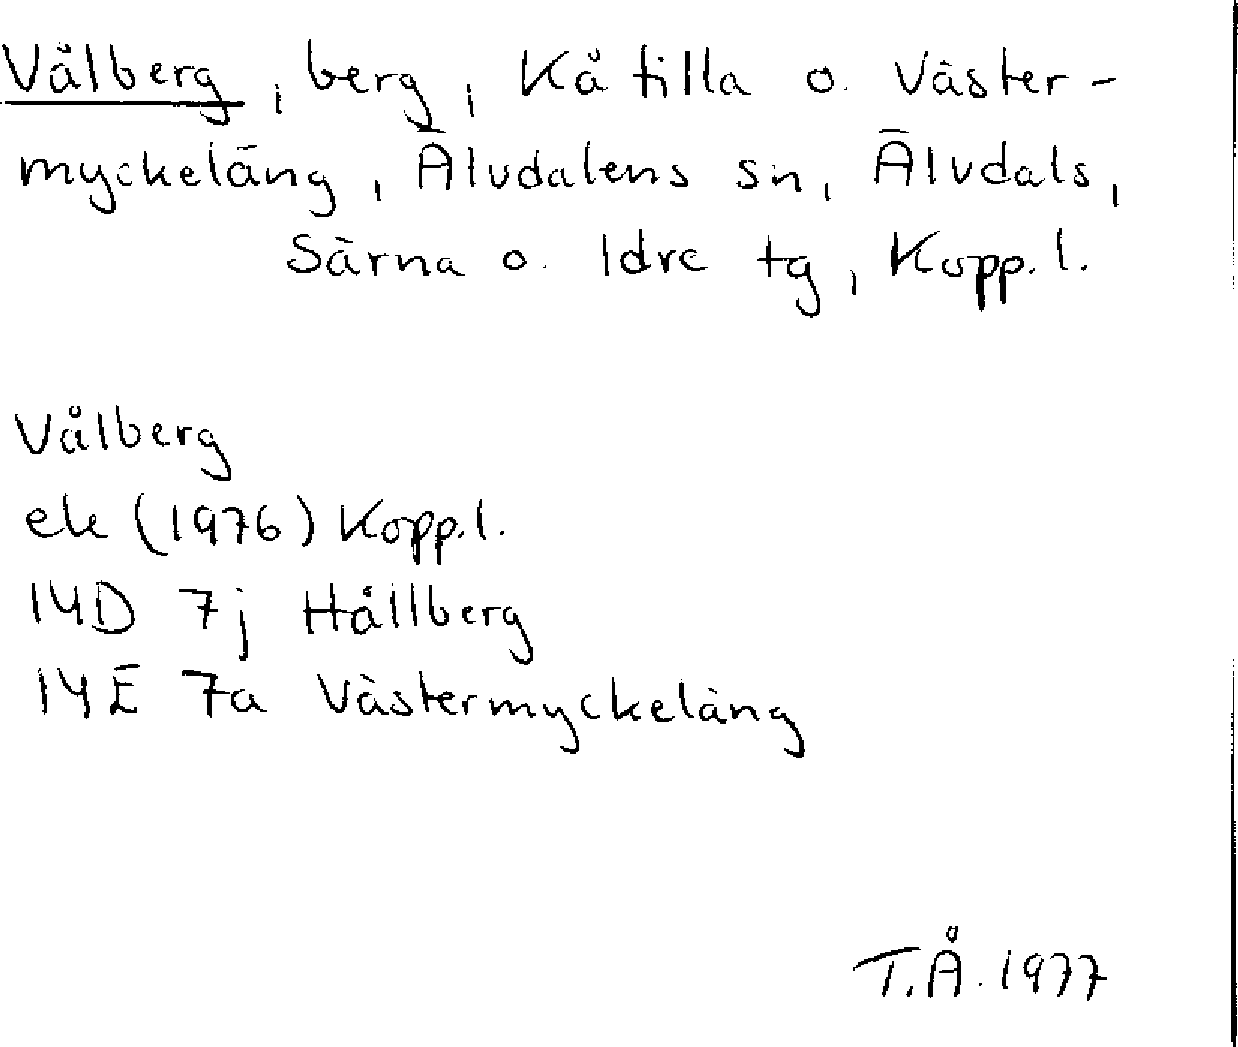 Vålberg, berg, Kåtilla o. Väster-
myckeläng, Älvdalens sn, Älvdals,
Särna o. Idre tg, Kopp.l.
Vålberg
ek (1976) Kopp.l.
14D 7j Hållberg
14E 7a Västermyckeläng
T.Å. 1977